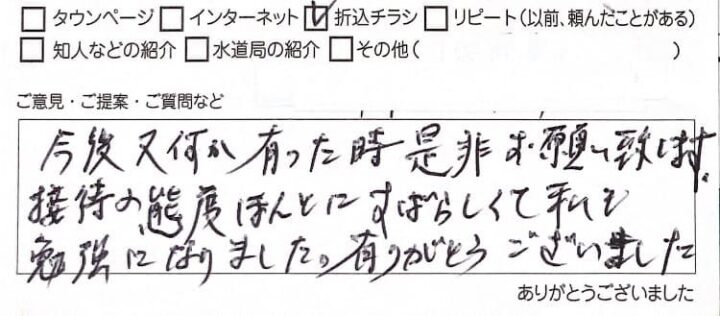 □タウンページ□インターネット☑折込チラシ□リピート(以前、頼んだことがある)
□知人などの紹介□水道局の紹介□その他( )
ご意見・ご提案・ご質問など
今後又何か有った時是非お願い致します。
接待の態度ほんとにすばらしくて私も
勉強になりました。有りがとうございました
ありがとうございました